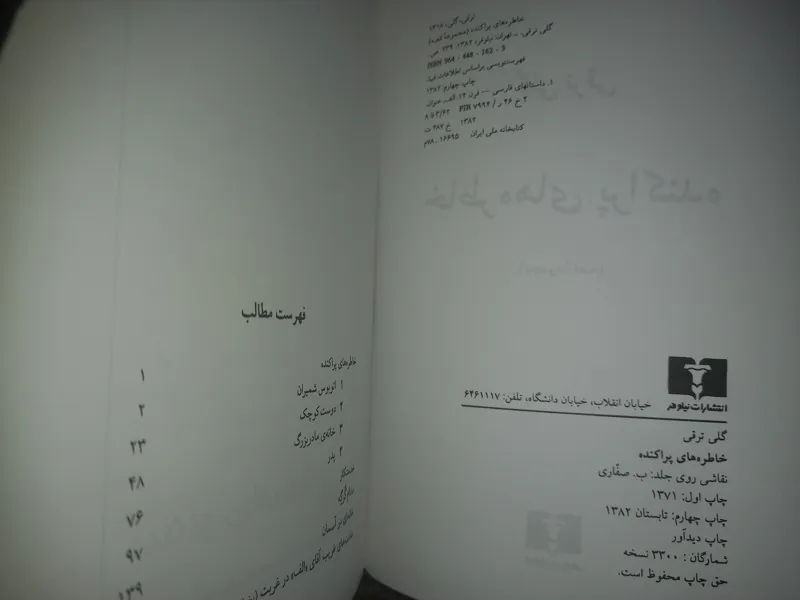 ترقی، گلی، ۱۳۱۸
خاطره‌های پراکنده (مجموعهٔ قصه)
گلی ترقی. ــ تهران: نیلوفر، ۱۳۸۲. ۲۳۹ ص.
ISBN 964 - 448 - 163 - 5
فهرست‌نویسی براساس اطلاعات فیپا.
چاپ چهارم: ۱۳۸۲
۱. داستانهای فارسی ــ قرن ۱۴. الف. عنوان.
۲ خ ۴۶ ر / PIR ۷۹۹۲ ۸ فا ۳/۶۲
۱۳۸۲ خ ۴۸۲ ت
کتابخانه ملی ایران ۱۶۶۹۵ ـ ۷۸م
انتشارات نیلوفر
خیابان انقلاب، خیابان دانشگاه، تلفن: ۶۴۶۱۱۱۷
گلی ترقی
خاطره‌های پراکنده
نقاشی روی جلد: ب. صفّاری
چاپ اول: ۱۳۷۱
چاپ چهارم: تابستان ۱۳۸۲
چاپ دیدآور
شمارگان: ۳۳۰۰ نسخه
حق چاپ محفوظ است.
فهرست مطالب
خاطره‌های پراکنده ۱
۱ اتوبوس شمیران ۲
۲ دوست کوچک ۲۳
۳ خانه‌ی مادربزرگ ۴۸
۴ پدر ۷۶
خدمتکار ۹۷
مادام گرگه ۱۳۹
خانه‌ای در آسمان
عادت‌های غریب آقای «الف» در غربت